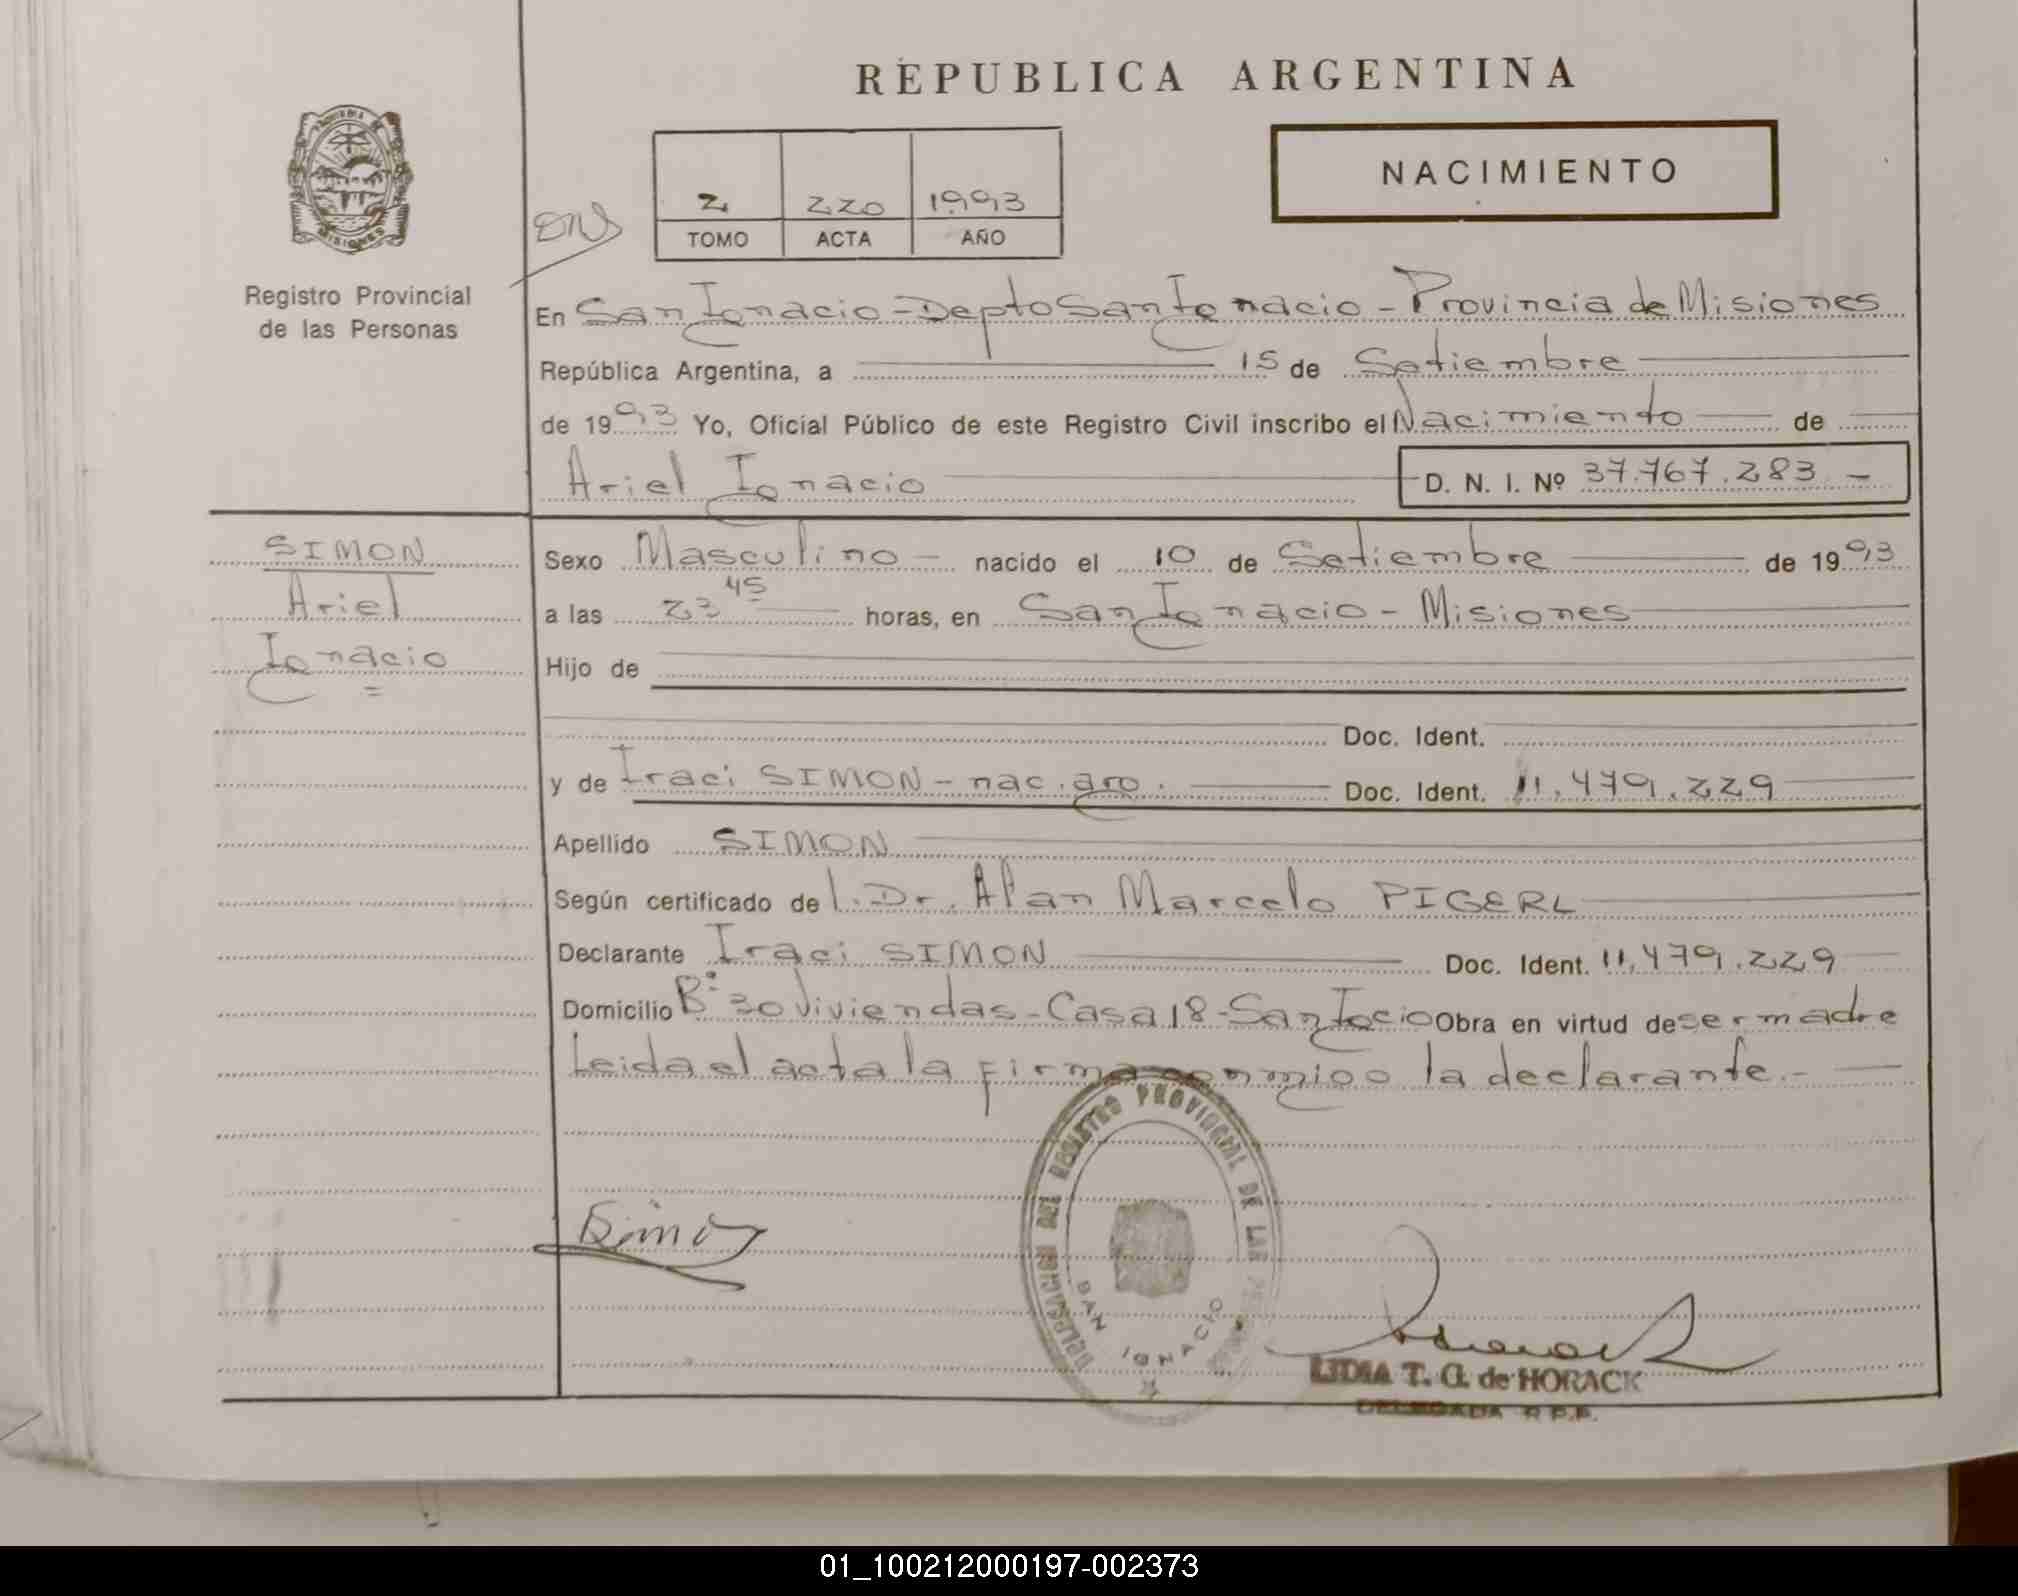 REPUBLICA ARGENTINA
NACIMIENTO
PROVINCIA DE
MISIONES
Registro Provincial
de las Personas
2 220 1993
TOMO ACTA AÑO
En San Ignacio - Depto San Ignacio - Provincia de Misiones
República Argentina, a 15 de Setiembre
de 1993 Yo, Oficial Público de este Registro Civil inscribo el Nacimiento de
Ariel Ignacio D. N. I. Nº 37.767.283.-
SIMON
Ariel
Ignacio
Sexo Masculino - nacido el 10 de Setiembre de 1993
a las 23 45 horas, en San Ignacio - Misiones
Hijo de
Doc. Ident.
y de Iraci SIMON - nac. arg. Doc. Ident. 11.479.229
Apellido SIMON
Según certificado de l. Dr. Alan Marcelo PIGERL
Declarante Iraci SIMON Doc. Ident. 11.479.229
Domicilio Bº 30 viviendas - Casa 18 - San Igcio Obra en virtud de ser madre
Leida el acta la firma conmigo la declarante.-
DELEGACION DEL REGISTRO PROVINCIAL DE LAS
SAN IGNACIO
LIDIA T. G. de HORACK
DELEGADA R.P.P.
01_100212000197-002373